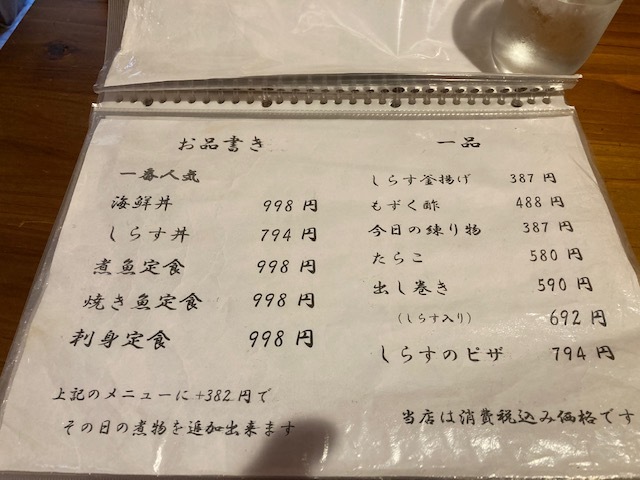 お品書き
一番人気
海鮮丼 998円
しらす丼 794円
煮魚定食 998円
焼き魚定食 998円
刺身定食 998円
上記のメニューに+382円で
その日の煮物を追加出来ます
一品
しらす釜揚げ 387円
もずく酢 488円
今日の練り物 387円
たらこ 580円
出し巻き 590円
(しらす入り) 692円
しらすのピザ 794円
当店は消費税込み価格です